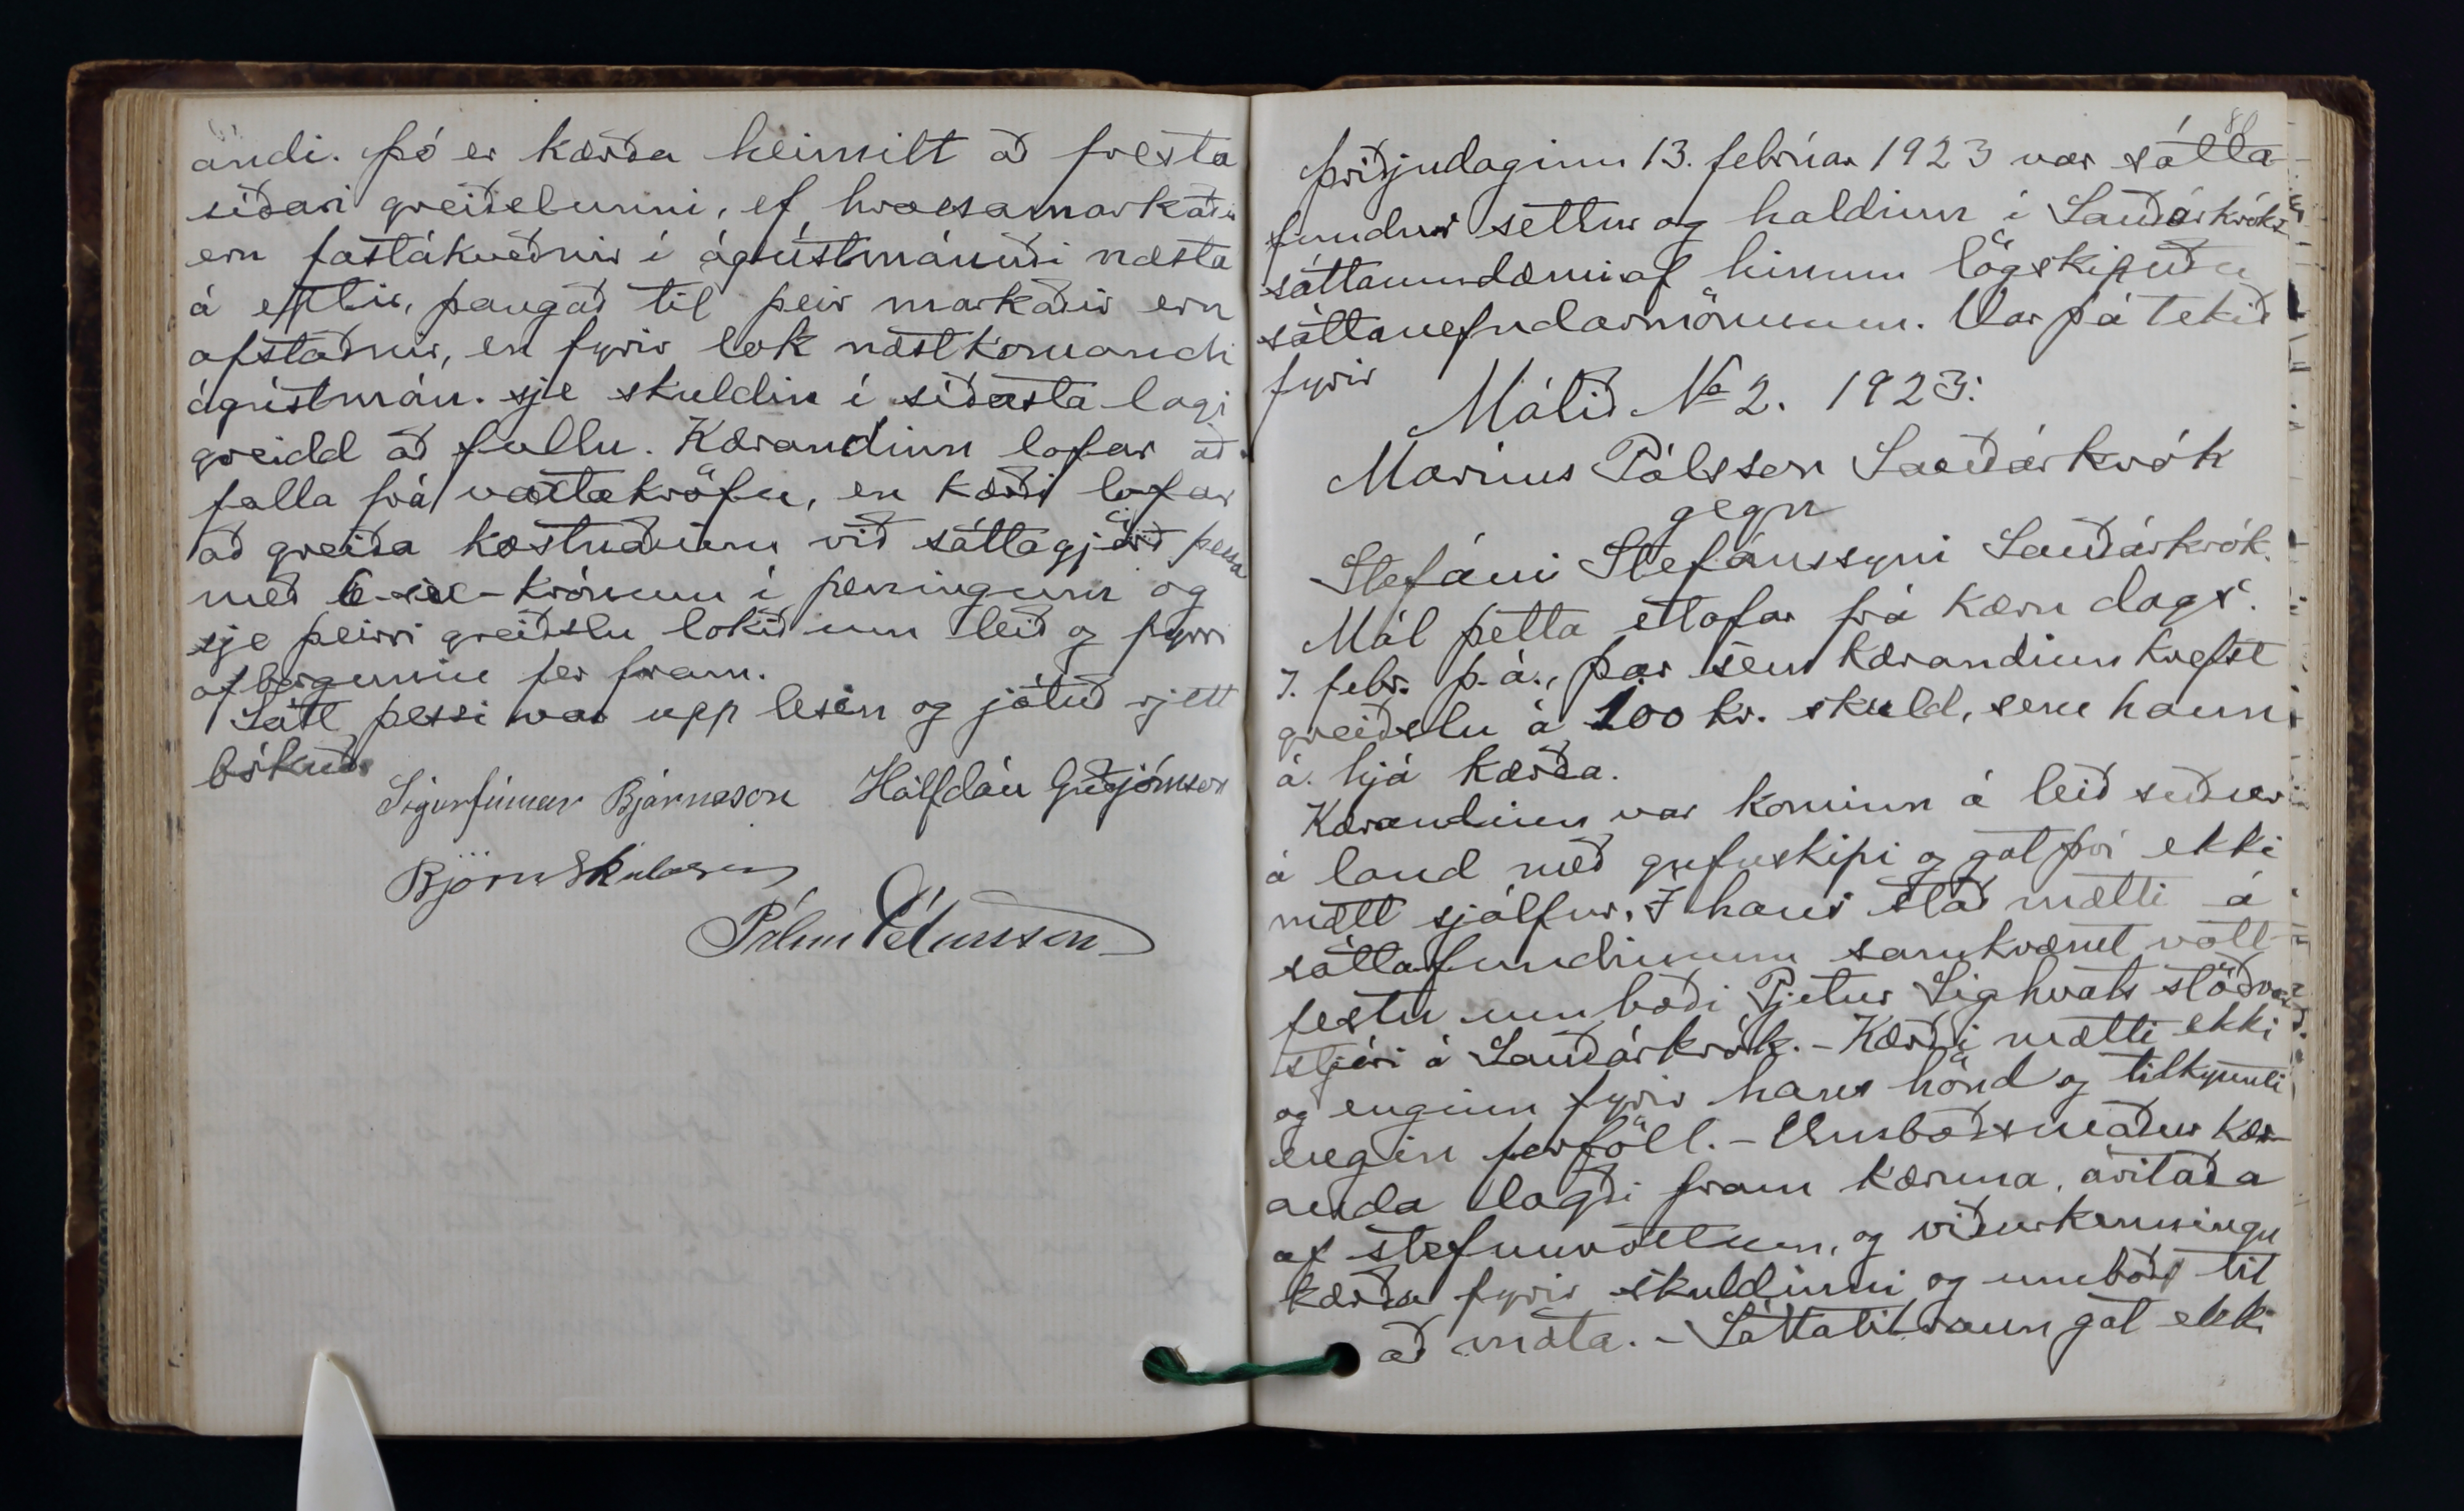 andi. Þó er kærða heimilt að fresta
síðari greiðslunni, ef hrossamarkaðir
eru fastákveðnir í ágústmánuði næsta
á eftir, þangað til þeir markaðir eru
afstaðnir, en fyrir lok næstkomandi
ágústmán. sje skuldin í síðasta lagi
greidd að fullu. Kærandinn lofar að
falla frá vaxtakröfu, en kærði lofar
að greiða kostnaðinn við sáttagjörð þessa
með 6 - sex - krónum í peningum og
sje þeirri greiðslu lokið um leið og fyrri
afborgunin fer fram.
Sátt þessi var upp lesin og játuð rjett
bókuð.
Sigurfinnur Bjarnason Hálfdán Guðjónsson
Björn Skúlason
Pálmi Pétursson
81
Þriðjudaginn 13. febrúar 1923 var sátta-
fundur settur og haldinn í Sauðárkróks
sáttaumdæmi af hinum lögskipuðu
sáttanefndarmönnum. Var þá tekið
fyrir
Málið No 2. 1923:
Marínus Pálsson Sauðárkrók
gegn
Stefáni Stefánssyni Sauðárkrók.
Mál þetta etlafar frá kæru dags.
7. febr. þ.á., þar sem kærandinn krefst
greiðslu á 100 kr. skuld, sem hann
á hjá kærða.
Kærandinn var kominn á leið suður
á land með gufuskipi og gat því ekki
mætt sjálfur. Í hans stað mætti á
sáttafundinum samkvæmt vott-
festu umboði Pjetur Sighvats stöðvar-
stjóri á Sauðárkrók. - Kærði mætti ekki
og enginn fyrir hans hönd og tilkynnti
engin forföll. - Umboðsmaður kær-
anda lagði fram kæruna, áritaða
af stefnuvottum, og viðurkenningu
kærða fyrir skuldinni og umboð til
að mæta. - Sáttatilraun gat ekki